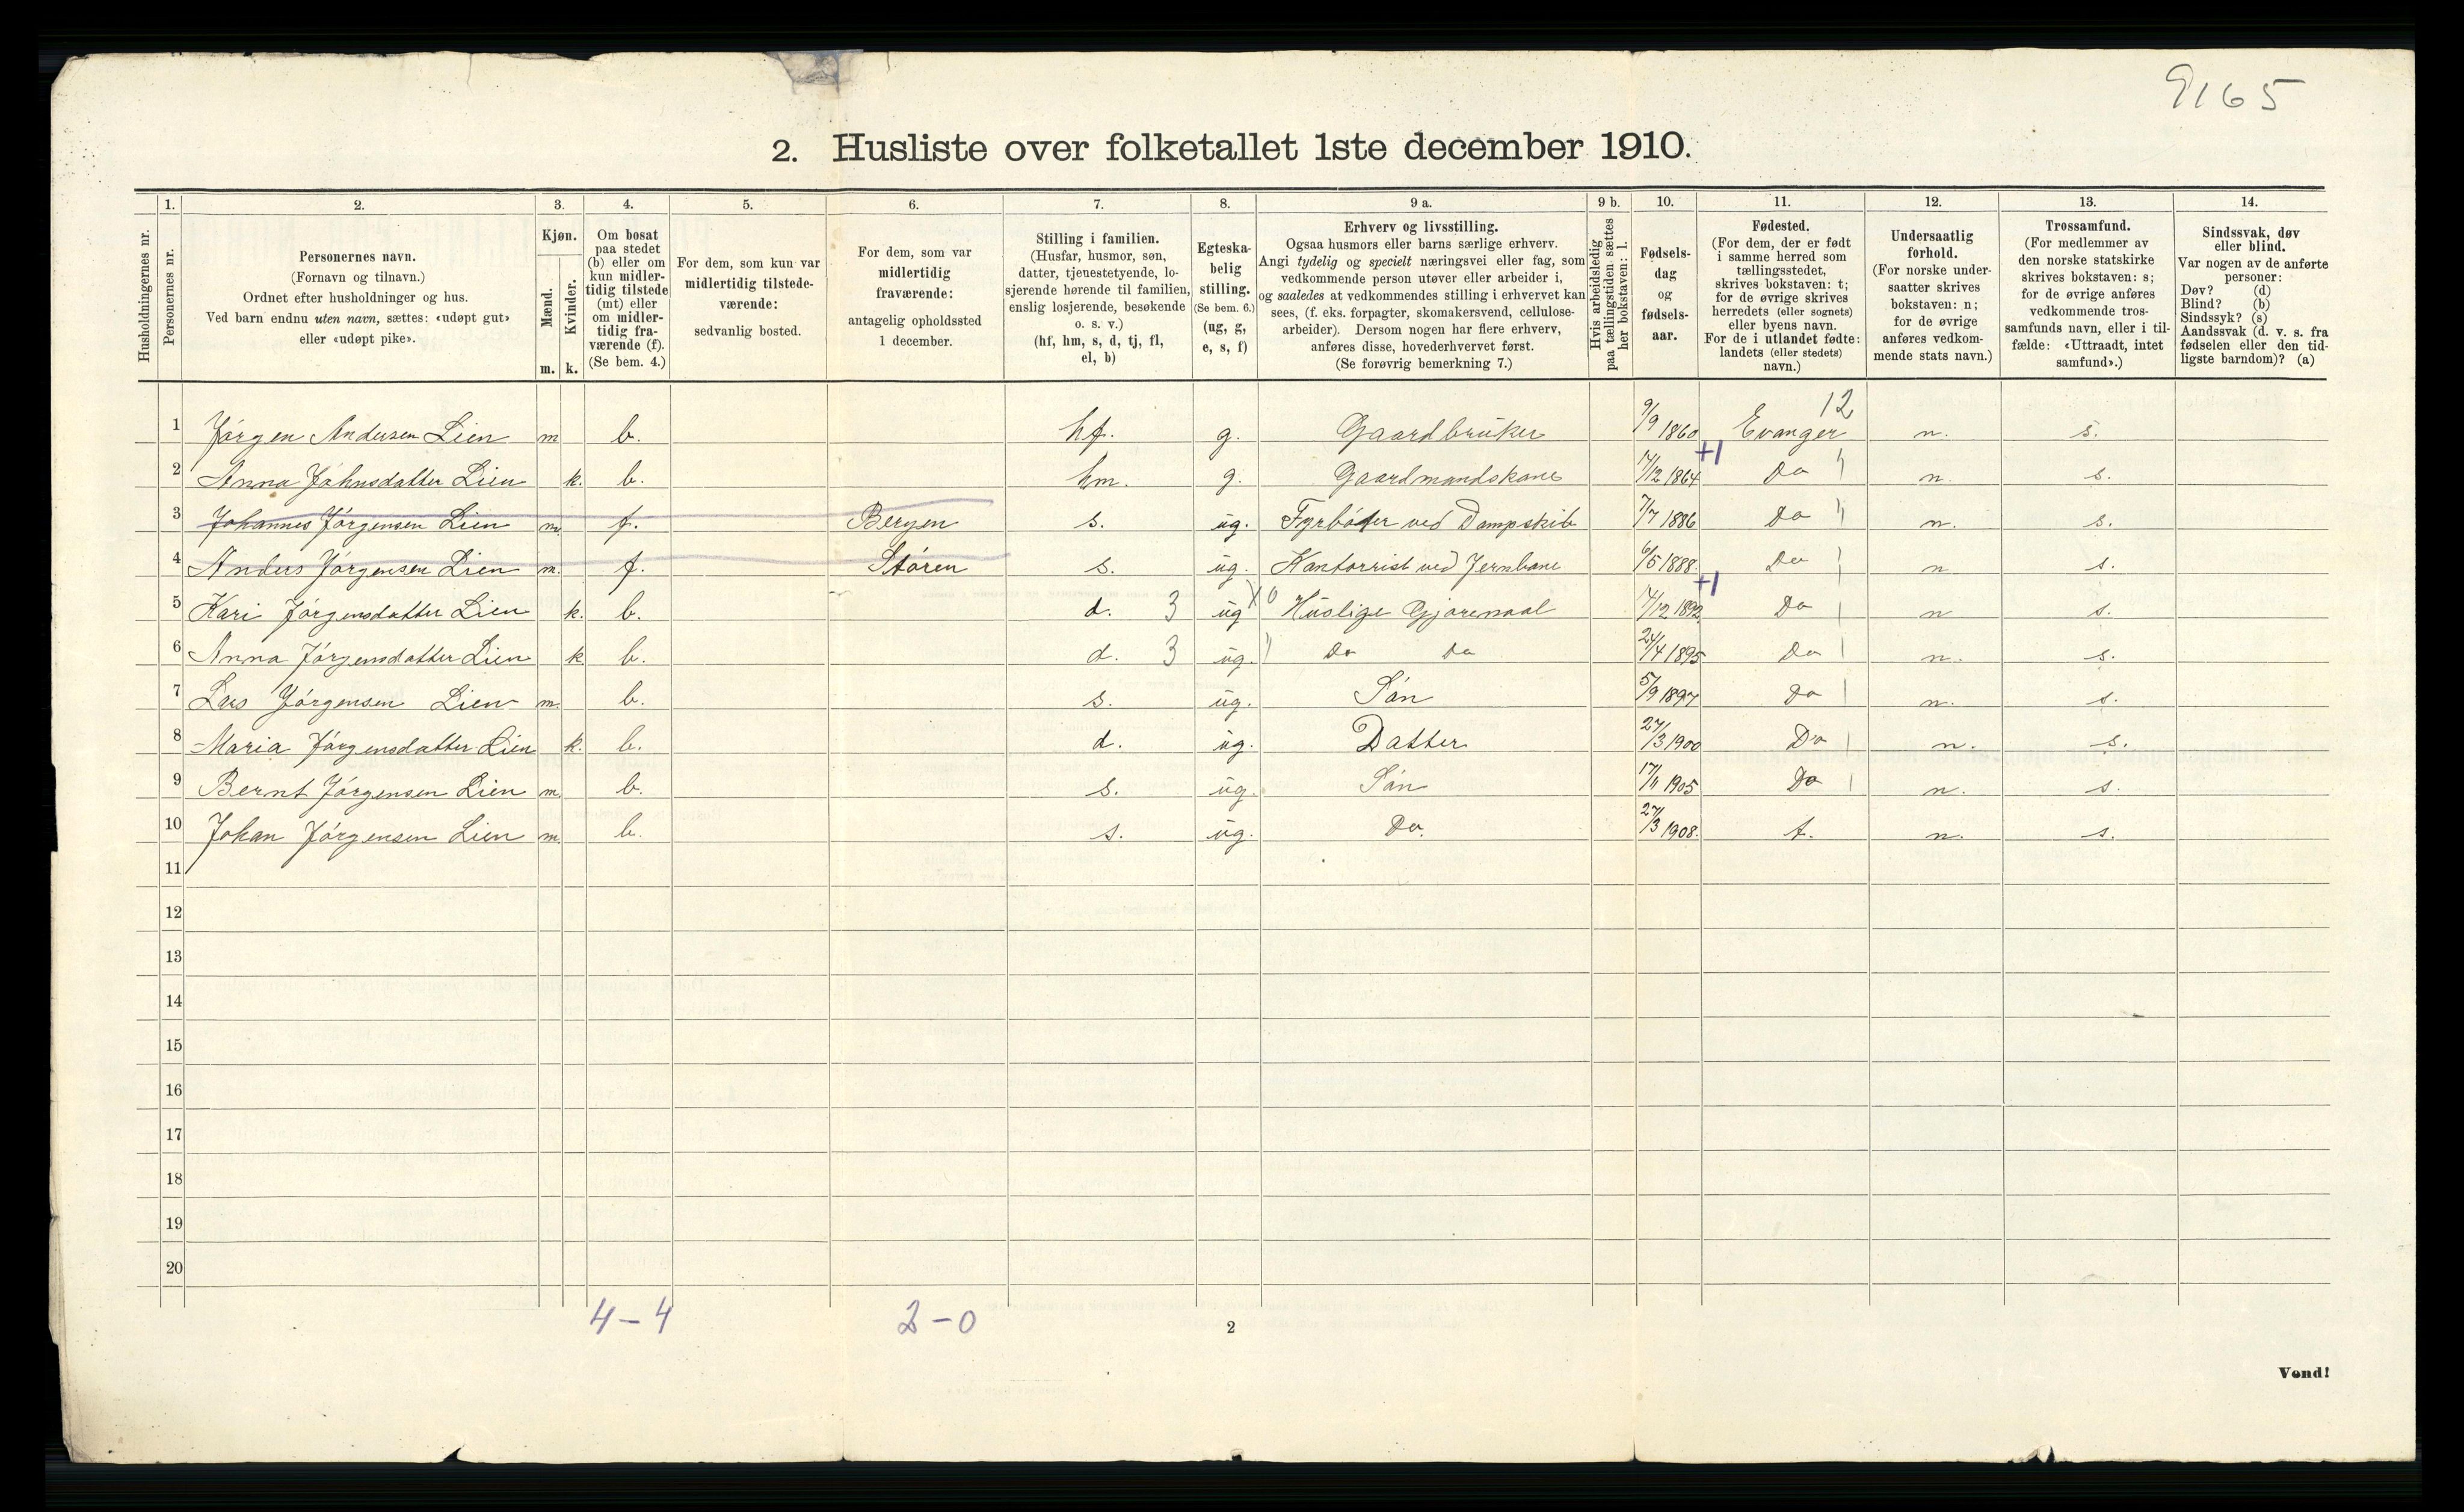 9165
2. Husliste over folketallet 1ste december 1910.
1. 2. 3. 4. 5. 6. 7. 8. 9 a. 9 b. 10. 11. 12. 13. 14.
Husholdningernes nr.
Personernes nr.
Personernes navn.
(Fornavn og tilnavn.)
Ordnet efter husholdninger og hus.
Ved barn endnu uten navn, sættes: «udøpt gut»
eller «udøpt pike».
Kjøn.
Mænd.
Kvinder.
m. k.
Om bosat
paa stedet
(b) eller om
kun midler-
tidig tilstede
(mt) eller
om midler-
tidig fra-
værende (f).
(Se bem. 4.)
For dem, som kun var
midlertidig tilstede-
værende:
sedvanlig bosted.
For dem, som var
midlertidig
fraværende:
antagelig opholdssted
1 december.
Stilling i familien.
(Husfar, husmor, søn,
datter, tjenestetyende, lo-
sjerende hørende til familien,
enslig losjerende, besøkende
o. s. v.)
(hf, hm, s, d, tj, fl,
el, b)
Egteska-
belig
stilling.
(Se bem. 6.)
(ug, g,
e, s, f)
Erhverv og livsstilling.
Ogsaa husmors eller barns særlige erhverv.
Angi tydelig og specielt næringsvei eller fag, som
vedkommende person utøver eller arbeider i,
og saaledes at vedkommendes stilling i erhvervet kan
sees, (f. eks. forpagter, skomakersvend, cellulose-
arbeider). Dersom nogen har flere erhverv,
anføres disse, hovederhvervet først.
(Se forøvrig bemerkning 7.)
Hvis arbeidsledig
paa tællingstiden sættes
her bokstaven: l.
Fødsels-
dag
og
fødsels-
aar.
Fødested.
(For dem, der er født
i samme herred som
tællingsstedet,
skrives bokstaven: t;
for de øvrige skrives
herredets (eller sognets)
eller byens navn.
For de i utlandet fødte:
landets (eller stedets)
navn.)
Undersaatlig
forhold.
(For norske under-
saatter skrives
bokstaven: n;
for de øvrige
anføres vedkom-
mende stats navn.)
Trossamfund.
(For medlemmer av
den norske statskirke
skrives bokstaven: s;
for de øvrige anføres
vedkommende tros-
samfunds navn, eller i til-
fælde: «Uttraadt, intet
samfund».)
Sindssvak, døv
eller blind.
Var nogen av de anførte
personer:
Døv? (d)
Blind? (b)
Sindssyk? (s)
Aandssvak (d. v. s. fra
fødselen eller den tid-
ligste barndom)? (a)
12
1 Jörgen Andersen Lien m b. hf. g. Gaardbrüker 9/9 1860 Evanger n. s.
2 Anna Johnsdatter Lien k. b. hm. g. Gaardmandskone 14/12 1864 +1 Do n. s.
3 Johannes Jörgensen Lien m. f. Bergen s. üg. Fyrböter ved Dampskib 7/7 1886 Do n. s.
4 Anders Jörgensen Lien m. f. Stören s. üg. Kantorrist ved Jernbane 6/5 1888. Do n s.
5 Kari Jörgensdatter Lien k. b. d. 3 üg Hüslige Gjöremaal 14/12 1892 +1 Do n s.
6 Anna Jörgensdatter Lien k b. d. 3 üg. Do Do 24/4 1895 Do n. s.
7 Lars Jörgensen Lien m. b. s. üg. Sön 5/9 1897 Do n. s.
8 Maria Jörgensdatter Lien k. b. d. üg. Datter 27/3 1900 Do n. s.
9 Bernt Jörgensen Lien m. b. s. üg. Sön 17/11 1905 Do n. s.
10 Johan Jörgensen Lien m. b. s. üg. Do. 27/3 1908. t. n. s.
11
12
13
14
15
16
17
18
19
20
4-4 2-0
2
Vend!